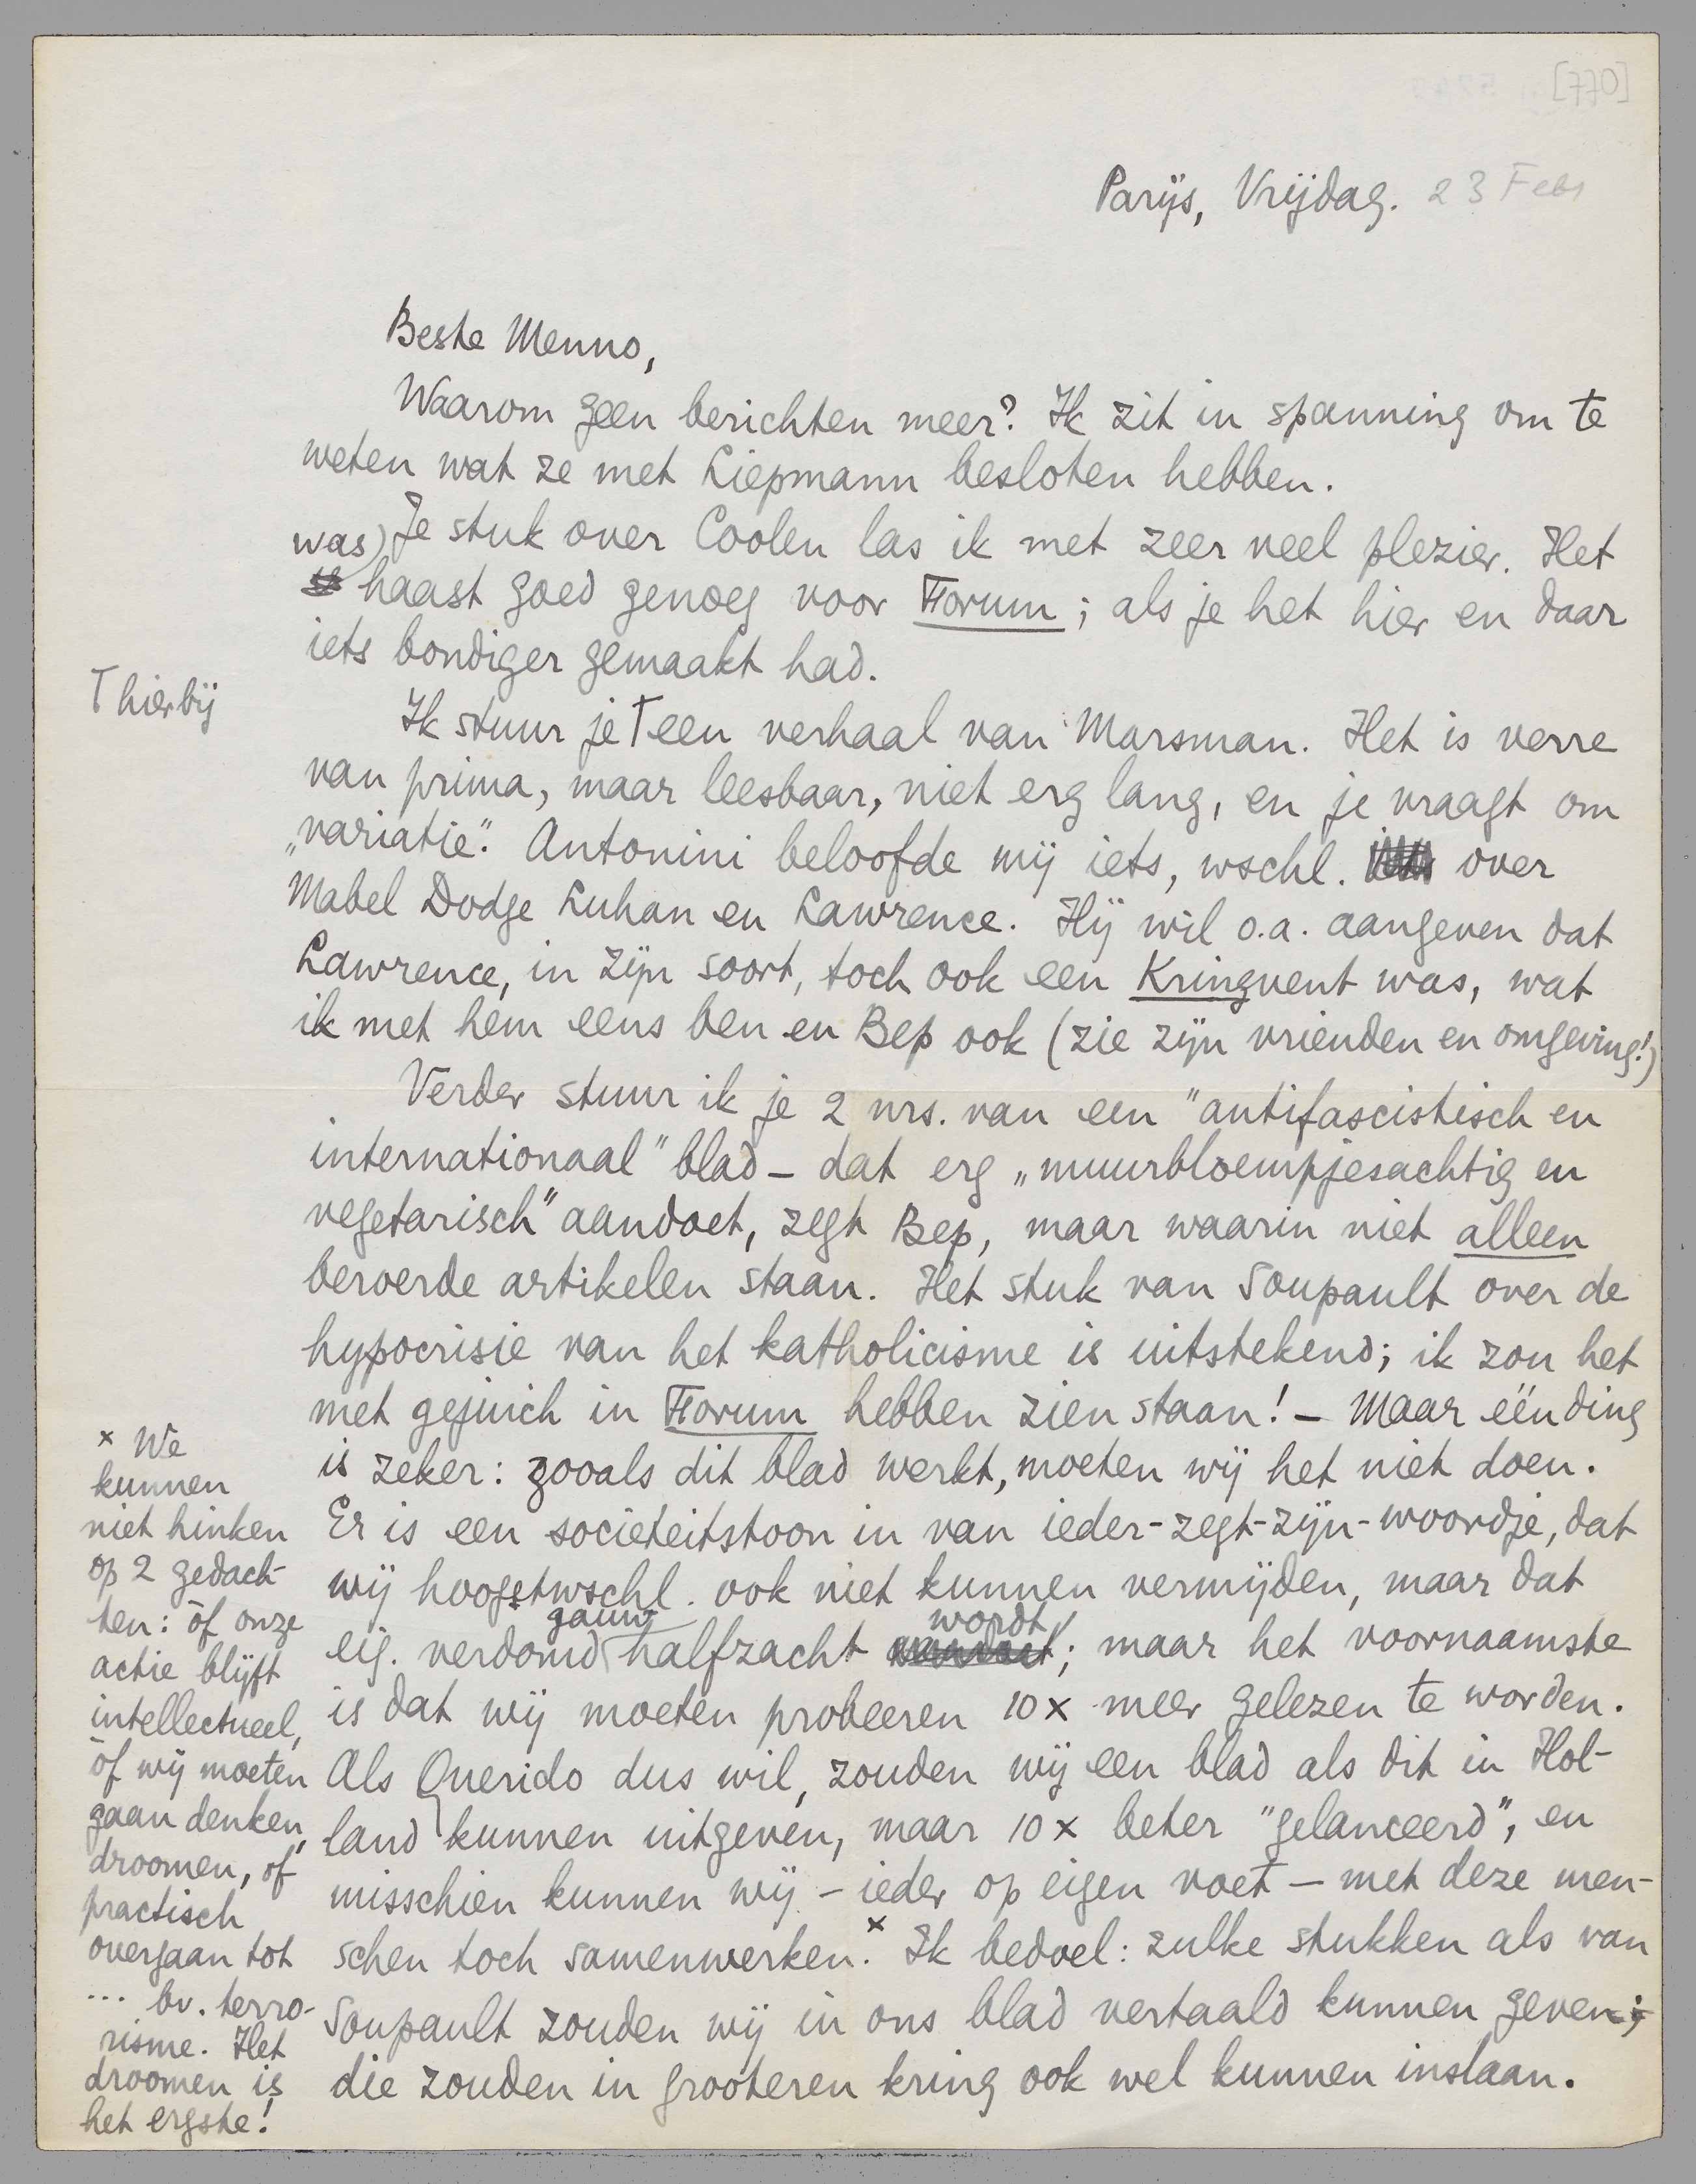 [770]
Parijs, Vrijdag. 23 Febr
Beste Menno,
Waarom geen berichten meer? Ik zit in spanning om te
weten wat ze met Liepmann besloten hebben.
Je stuk over Coolen las ik met zeer veel plezier. Het
was) haast goed genoeg voor Forum; als je het hier en daar
iets bondiger gemaakt had.
Ik stuur je ⊤ een verhaal van Marsman. Het is verre
⊤ hierbij
van prima, maar leesbaar, niet erg lang, en je vraagt om
„variatie". Antonini beloofde mij iets, wschl. over
Mabel Dodge Luhan en Lawrence. Hij wil o.a. aangeven dat
Lawrence, in zijn soort, toch ook een Kringvent was, wat
ik met hem eens ben en Bep ook (zie zijn vrienden en omgeving!)
Verder stuur ik je 2 nrs. van een "antifascistisch en
internationaal" blad – dat erg „muurbloempjesachtig en
vegetarisch" aandoet, zegt Bep, maar waarin niet alleen
beroerde artikelen staan. Het stuk van Soupault over de
hypocrisie van het katholicisme is uitstekend; ik zou het
met gejuich in Forum hebben zien staan! – Maar één ding
is zeker: zooals dit blad werkt, moeten wij het niet doen.
Er is een societeitstoon in van ieder-zegt-zijn-woordje, dat
wij hoogstwschl. ook niet kunnen vermijden, maar dat
eig. verdomd gauw halfzacht wordt; maar het voornaamste
is dat wij moeten probeeren 10 x meer gelezen te worden.
Als Querido dus wil, zouden wij een blad als dit in Hol-
land kunnen uitgeven, maar 10 x beter "gelanceerd", en
misschien kunnen wij – ieder op eigen voet – met deze men-
schen toch samenwerken.x Ik bedoel: zulke stukken als van
Soupault zouden wij in ons blad vertaald kunnen geven;
die zouden in grooteren kring ook wel kunnen inslaan.
x We
kunnen
niet hinken
op 2 gedach-
ten: òf onze
actie blijft
intellectueel,
òf wij moeten
gaan denken,
droomen, of
practisch
overgaan tot
... bv. terro-
risme. Het
droomen is
het ergste!